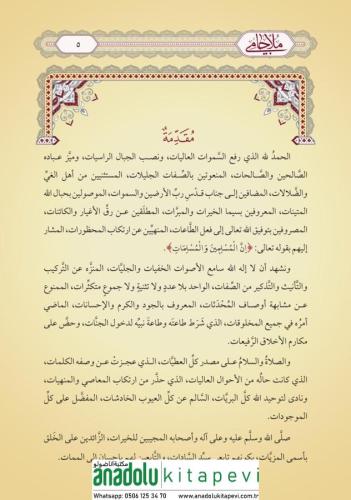 ملا جامي
٥
مُقَدِّمَةٌ
الحمدُ لله الذي رفع السَّموات العاليات، ونصب الجبال الراسيات، وميَّز عباده
الصَّالحين والصَّالحات، المنعوتين بالصِّفات الجليلات، المستثنيين من أهل الغيِّ
والضَّلالات، المضافين إلى جناب قدْسِ ربِّ الأرضين والسموات، الموصولين بحبال الله
المتينات، المعروفين بسيما الخيرات والمبرَّات، المطلَقين عن رقِّ الأغيار والكائنات،
المصروفين بتوفيق الله تعالى إلى فعل الطَّاعات، المنهيِّين عن ارتكاب المحظورات، المشار
إليهم بقوله تعالى: ﴿إِنَّ الْمُسْلِمِينَ وَالْمُسْلِمَاتِ﴾.
ونشهد أن لا إله الله سامع الأصوات الخفيات والجليَّات، المنزَّه عن التَّركيب
والتأنيث والتَّذكير من الصِّفات، الواحد بلا عددٍ ولا تثنيةٍ ولا جموعٍ متكثِّرات، الممنوع
عن مشابهة أوصاف المُحْدَثات، المعروف بالجود والكرم والإحسانات، الماضي
أمرُه في جميع المخلوقات، الذي شَرَط طاعتَه وطاعةَ نبيِّه لدخول الجنَّات، وحضَّ على
مكارم الأخلاق الرَّفيعات.
والصلاةُ والسلامُ على مصدر كلِّ العطيَّات، الذي عجزتْ عن وصفه الكلمات،
الذي كانت حالُه من الأحوال العاليات، الذي حذَّر من ارتكاب المعاصي والمنهيات،
ونادى لتوحيد الله كلَّ البريَّات، السَّالم عن كلِّ العيوب الخادشات، المفضَّل على كلِّ
الموجودات.
صلَّى الله وسلَّم عليه وعلى آله وأصحابه المجيبين للخيرات، الزَّائدين على الخَلق
بأسمى المزيَّات، بكونهم تابعي سيِّد السَّادات، والتَّابعين لهم بإحسان إلى الممات.
مكتبة الأناضول
anadolukitapevi
Whatsapp: 0506 125 34 70 www.anadolukitapevi.com